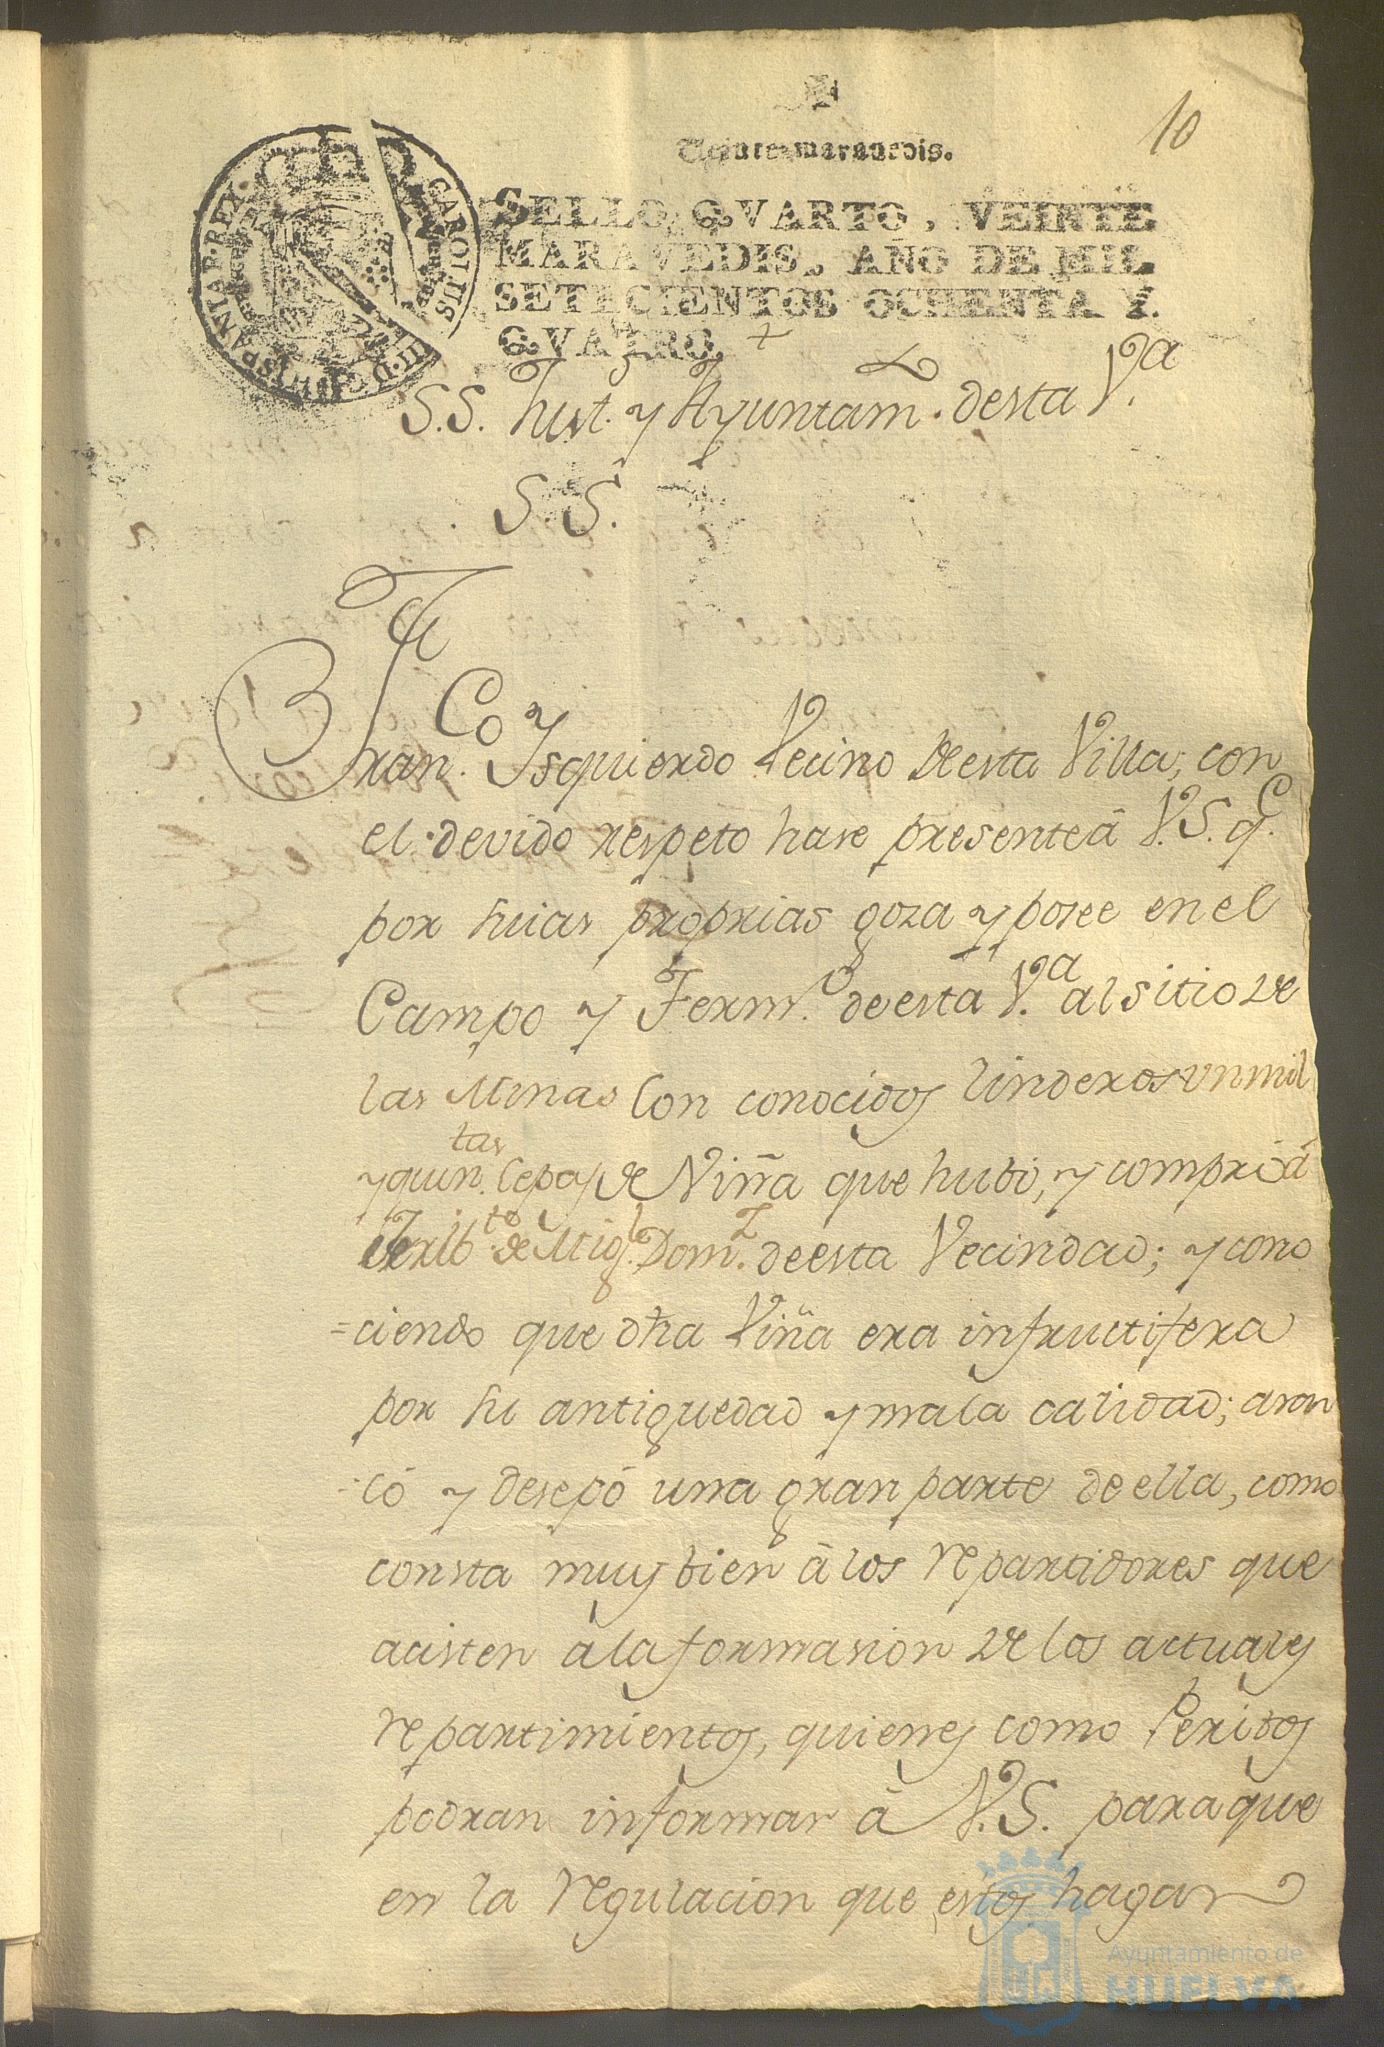 10
Veinte maravedis.
SELLO QVARTO, VEINTE
MARAVEDIS, AÑO DE MIL
SETECIENTOS OCHENTA Y
QVATRO.
CAROLUS III D G HISPANIAR REX
S.S. Just. y Ayuntam.to desta V.a
S.S.
Fran.co Ysquierdo Vecino de esta Villa, con
el devido respeto hase presente â V.S. q.e
por suias proprias goza y posee en el
Campo y Term.o de esta V.a al sitio de
las Minas Con conocidos linderos un mil
y quin.tas Cepas de Viña que hubo, y compró â
de Mig.l Dom.z de esta Vecindad; y cono
=ciendo que dha Viña era infructifera
por su antiguedad y mala calidad; aran
-có y desepó una gran parte de ella, como
consta muy bien â los repartidores que
acisten â la formasion de los actuales
repartimientos, quienes como Peritos
podran informar â V.S. para que
en la regulacion que estos hagan
Ayuntamiento de
HUELVA